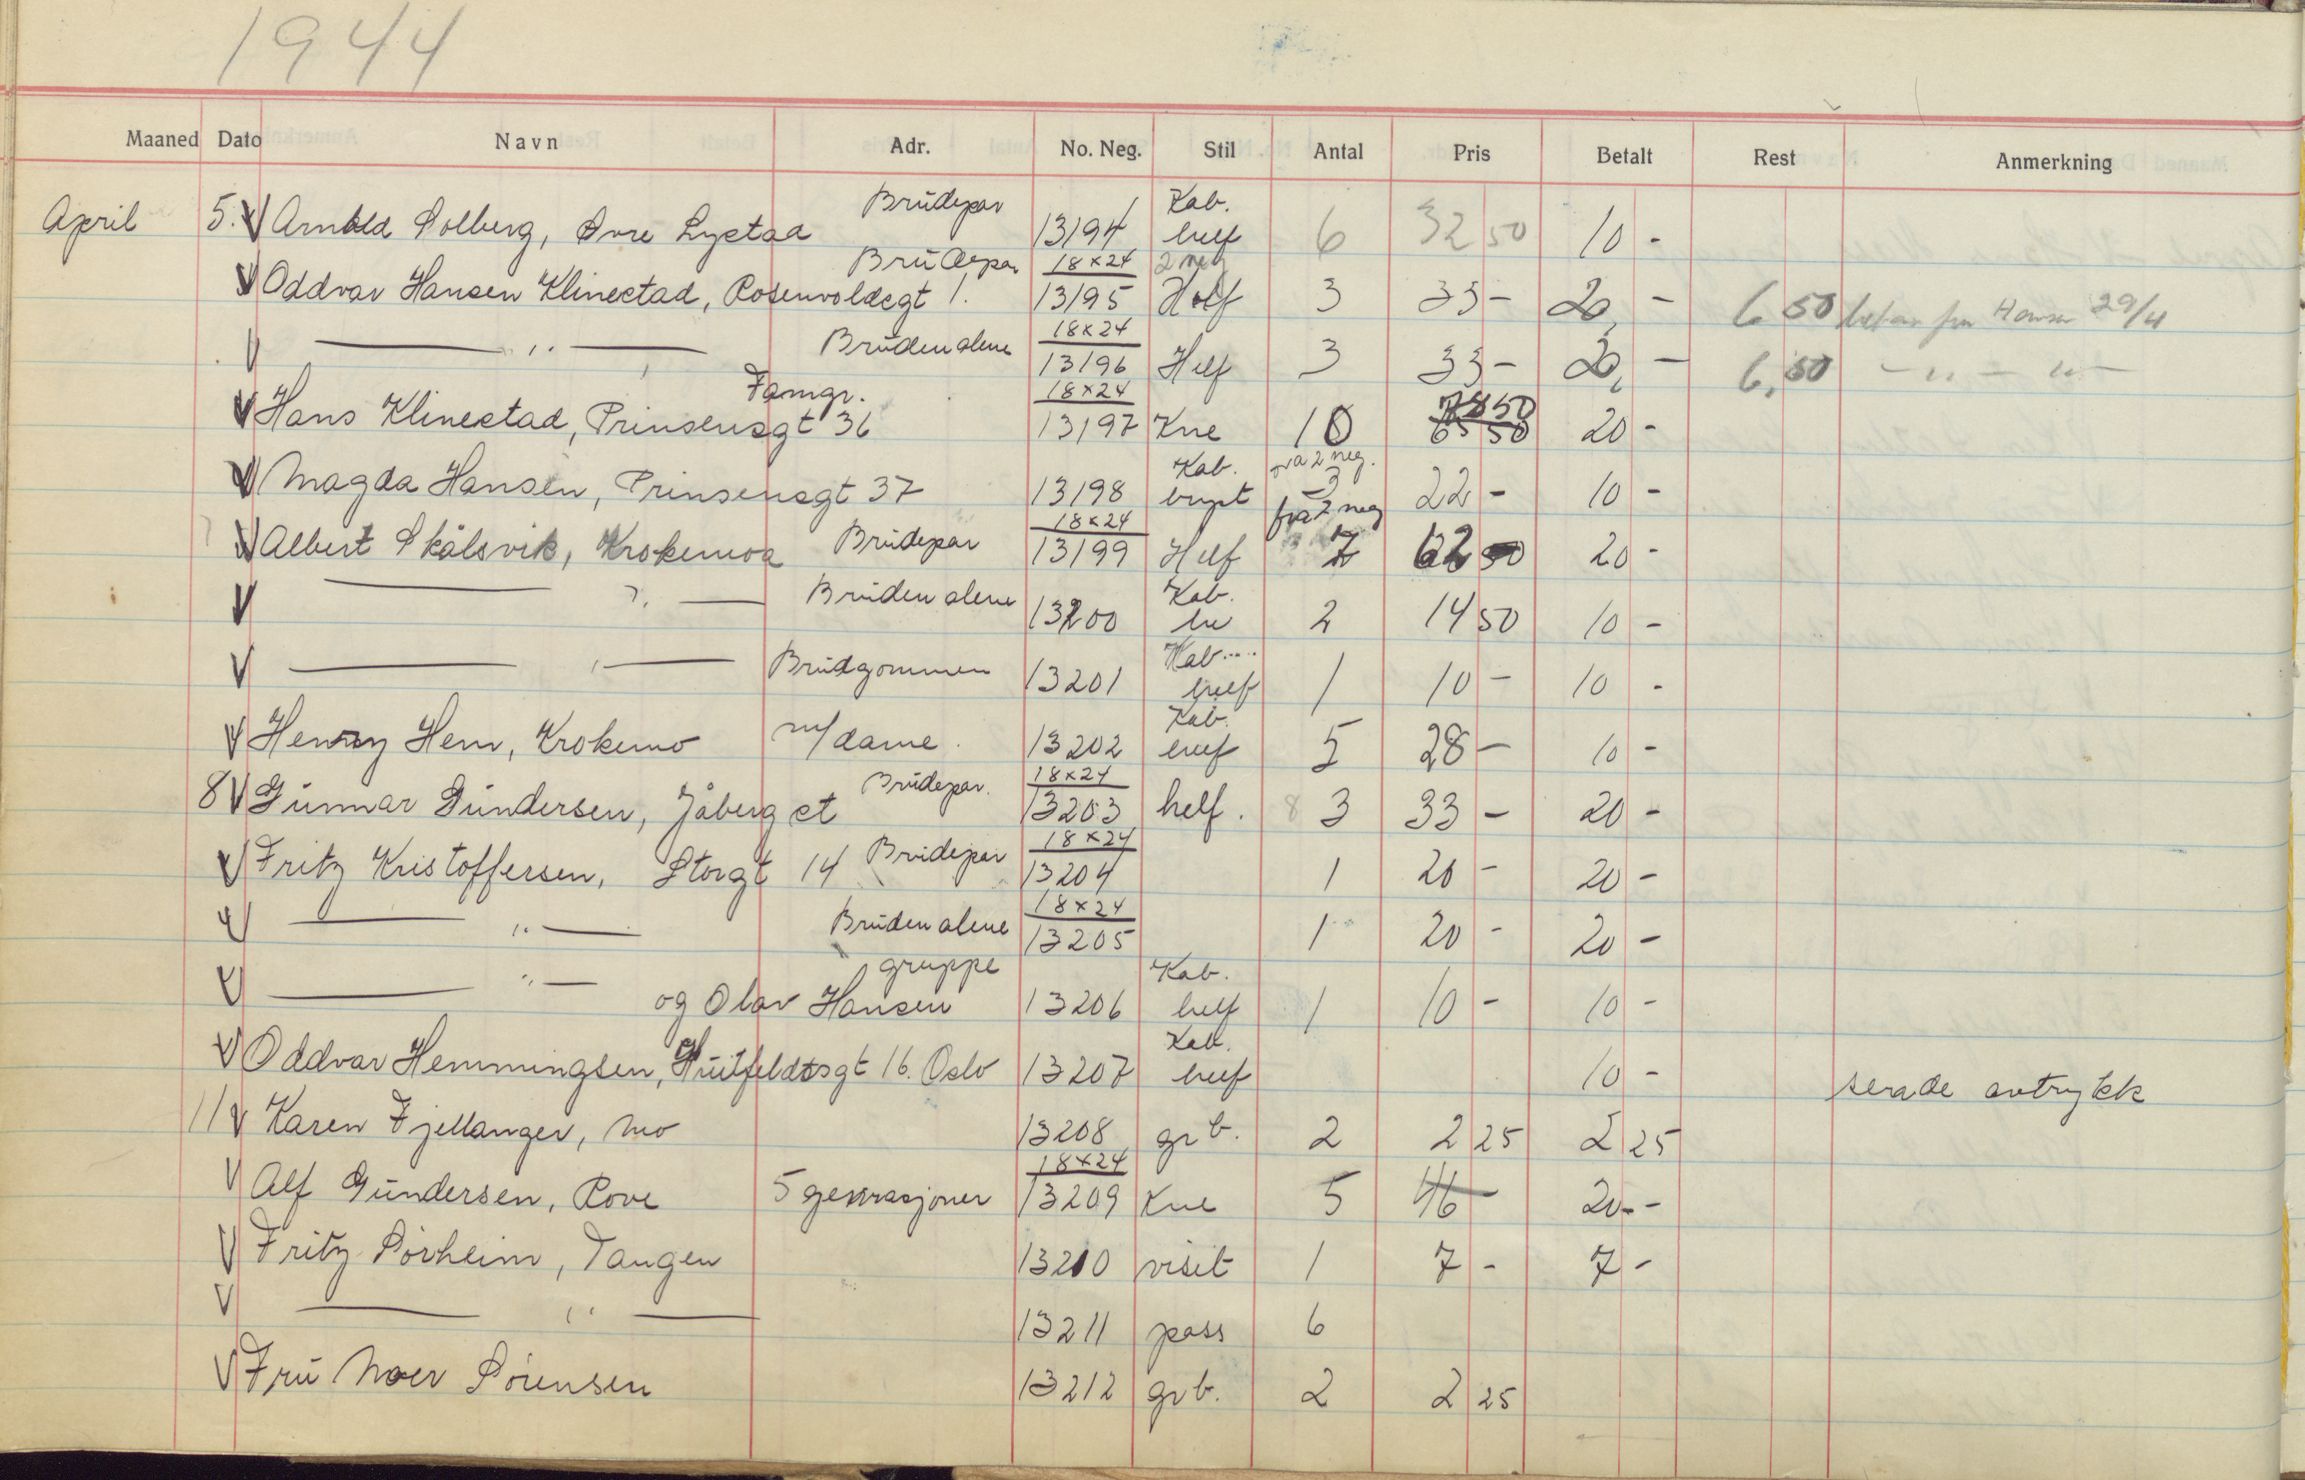 1944
Maaned Dato Navn Adr. No. Neg. Stil Antal Pris Betalt Rest Anmerkning
Brudepar Kab.
April 5. V Arnold Solberg, Øvre Lystad 13194 helf 6 32 50 10 -
Brudepar 18x24 2 neg
V Oddvar Hansen Klinestad, Rosenvoldsgt 1. 13195 Helf 3 33 - 20, - 6 50 fru Hansen 29/4
18x24
V — " — Bruden alene 13196 Helf 3 33 - 20, - 6,50 — " — " —
Famgr. 18x24
V Hans Klinestad, Prinsensgt 36 13197 Kne 10 65 50 20 -
Kab. fra 2 neg.
V Magda Hansen, Prinsensgt 37 13198 bryst 3 22 - 10 -
18x24 fra 2 neg
V Albert Skålsvik, Krokemoa Brudepar 13199 Helf 7 62 20 -
Kab.
V — " — Bruden alene 13200 he 2 14 50 10 -
Kab.
V — " — Brudgommen 13201 helf 1 10 - 10 -
Kab.
V Henry Hem, Krokemo m/dame. 13202 helf 5 28 - 10 -
Brudepar. 18x24
8 V Gunnar Gundersen, Jåberg st 13203 helf. 3 33 - 20 -
18x24
V Fritz Kristoffersen, Storgt 14 Brudepar 13204 1 20 - 20 -
18x24
V — " — Bruden alene 13205 1 20 - 20 -
gruppe Kab.
V — " — og Olav Hansen 13206 helf 1 10 - 10 -
Kab.
V Oddvar Hemmingsen, Huitfeldtsgt 16. Oslo 13207 helf 10 - sende avtrykk
11 V Karen Fjellanger, Mo 13208 gr b. 2 2 25 2 25
18x24
V Alf Gundersen, Rove 5 generasjoner 13209 Kne 5 46 - 20 - -
V Fritz Sørheim, Tangen 13210 visit 1 7 - 7 -
V — " — 13211 pass 6
V Fru Moer Sørensen 13212 gr b. 2 2 25